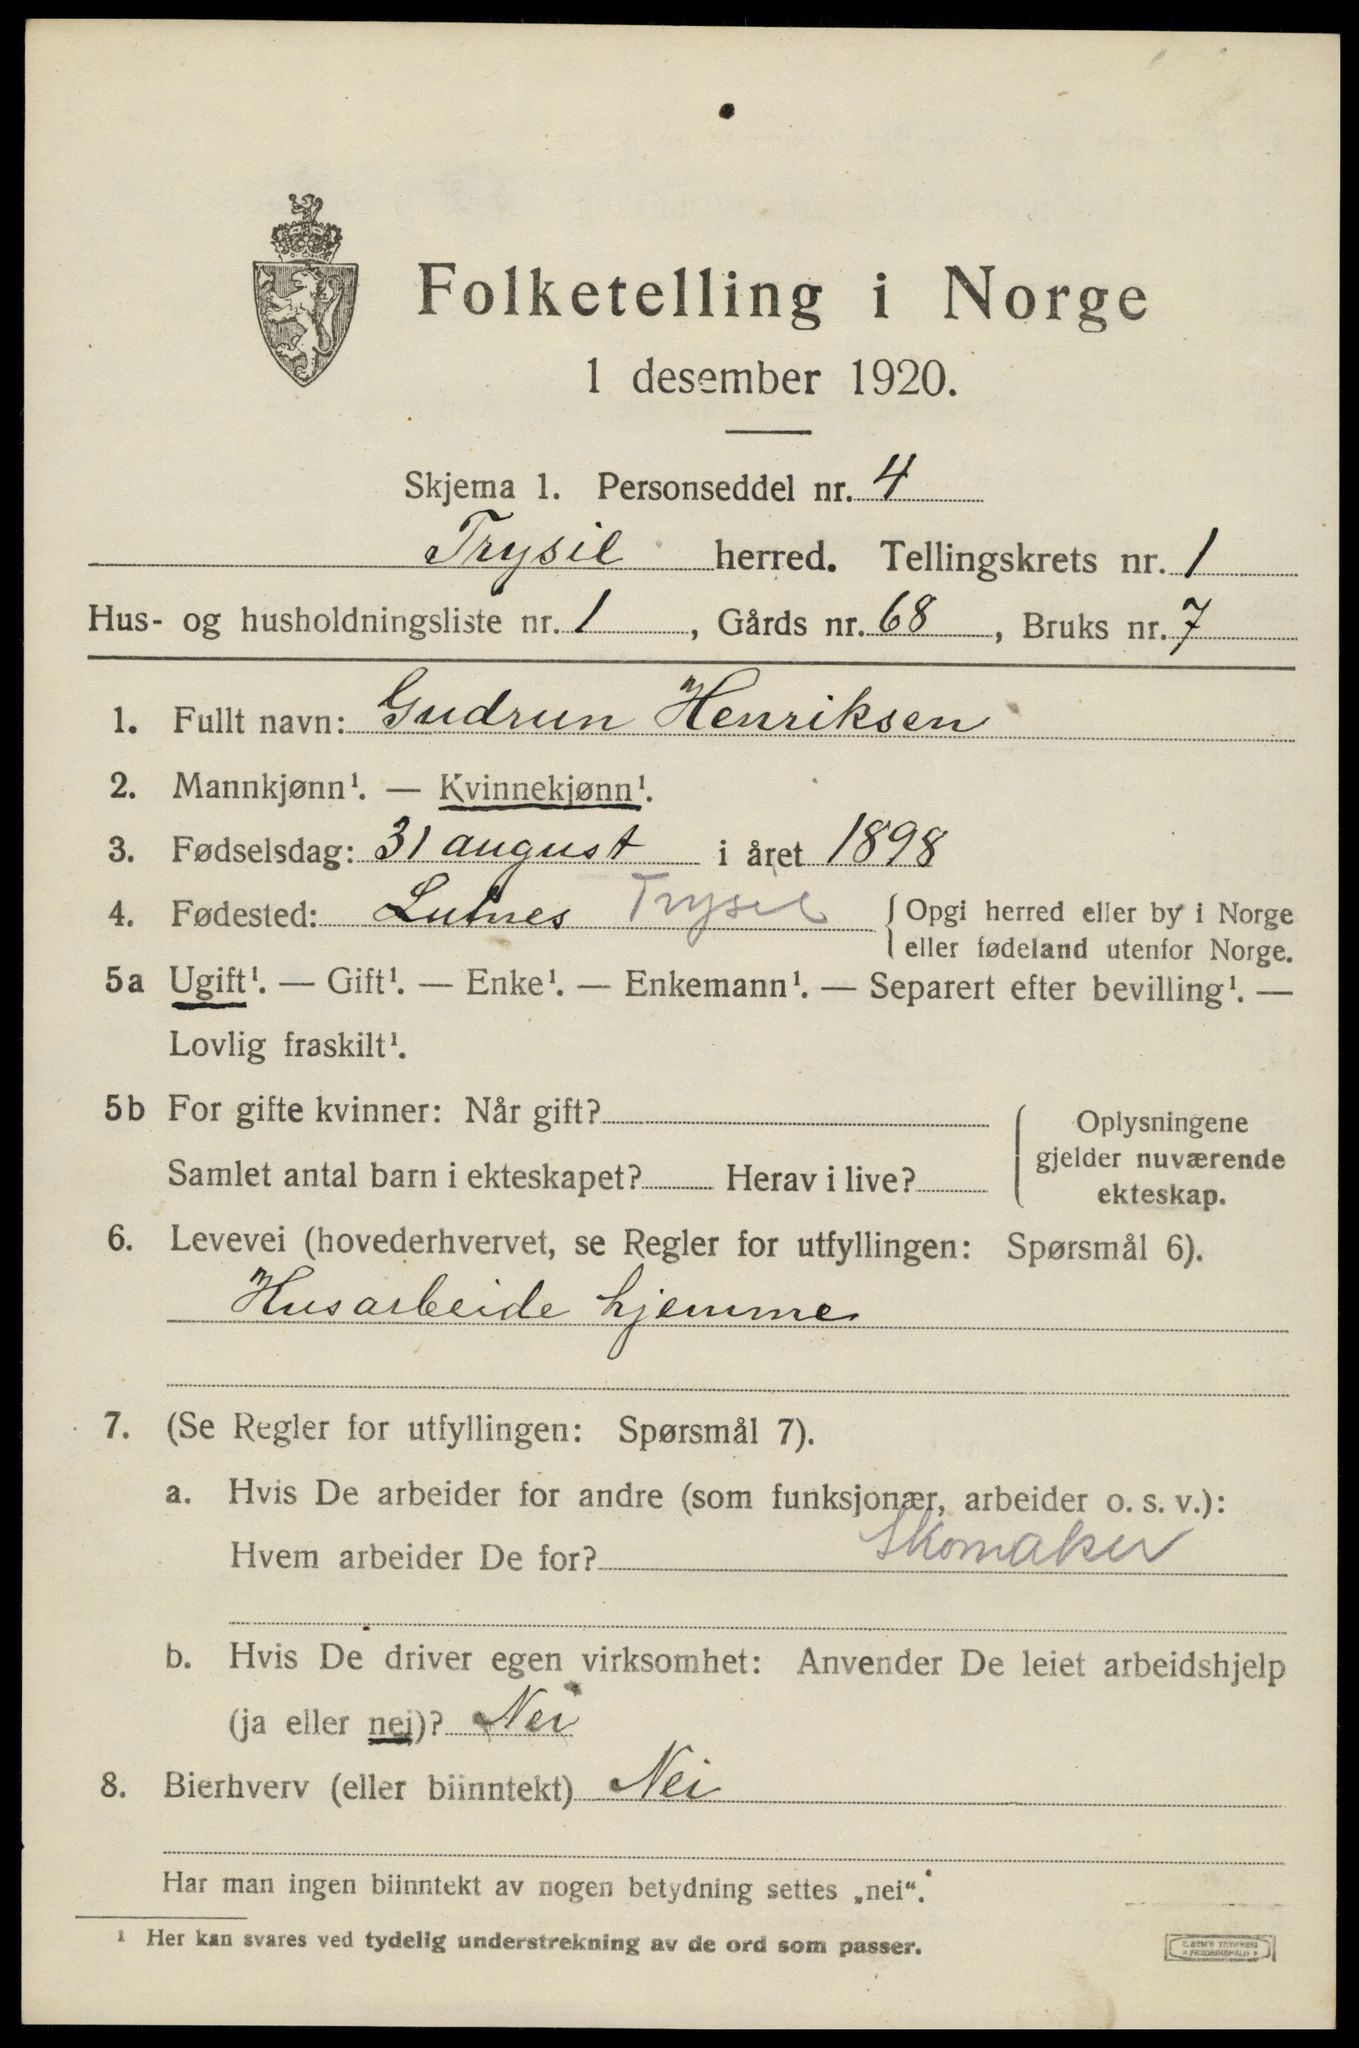 Folketelling i Norge
1 desember 1920.
Skjema 1. Personseddel nr. 4
Trysil herred. Tellingskrets nr. 1
Hus- og husholdningsliste nr. 1, Gårds nr. 68, Bruks nr. 7
1. Fullt navn: Gudrun Henriksen
2. Mannkjønn¹. — Kvinnekjønn¹.
3. Fødselsdag: 31 august i året 1898
4. Fødested: Lutnes Trysil { Opgi herred eller by i Norge
eller fødeland utenfor Norge.
5a Ugift¹. — Gift¹. — Enke¹. — Enkemann¹. — Separert efter bevilling¹. —
Lovlig fraskilt¹.
5b For gifte kvinner: Når gift?
Samlet antal barn i ekteskapet? Herav i live?
Oplysningene
gjelder nuværende
ekteskap.
6. Levevei (hovederhvervet, se Regler for utfyllingen: Spørsmål 6).
Husarbeide hjemme
7. (Se Regler for utfyllingen: Spørsmål 7).
a. Hvis De arbeider for andre (som funksjonær, arbeider o. s. v.):
Hvem arbeider De for? Skomaker
b. Hvis De driver egen virksomhet: Anvender De leiet arbeidshjelp
(ja eller nei)? Nei
8. Bierhverv (eller biinntekt) Nei
Har man ingen biinntekt av nogen betydning settes „nei“.
¹ Her kan svares ved tydelig understrekning av de ord som passer.